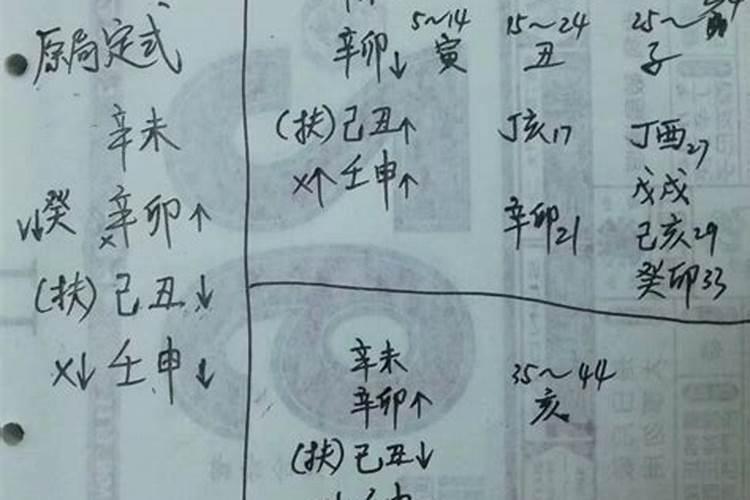 原局定式
辛未
↓癸 辛卯↑
×
(扶)己丑↓
×↓壬申↓
5~14 15~24 25~
辛卯↓ 寅 丑 子
(扶)己丑↑ 丁亥17 丁酉27
×↑壬申↑ 戊戌
辛卯21 己亥29
癸卯33
辛未 35~44
辛卯↑ 亥
(扶)己丑↓